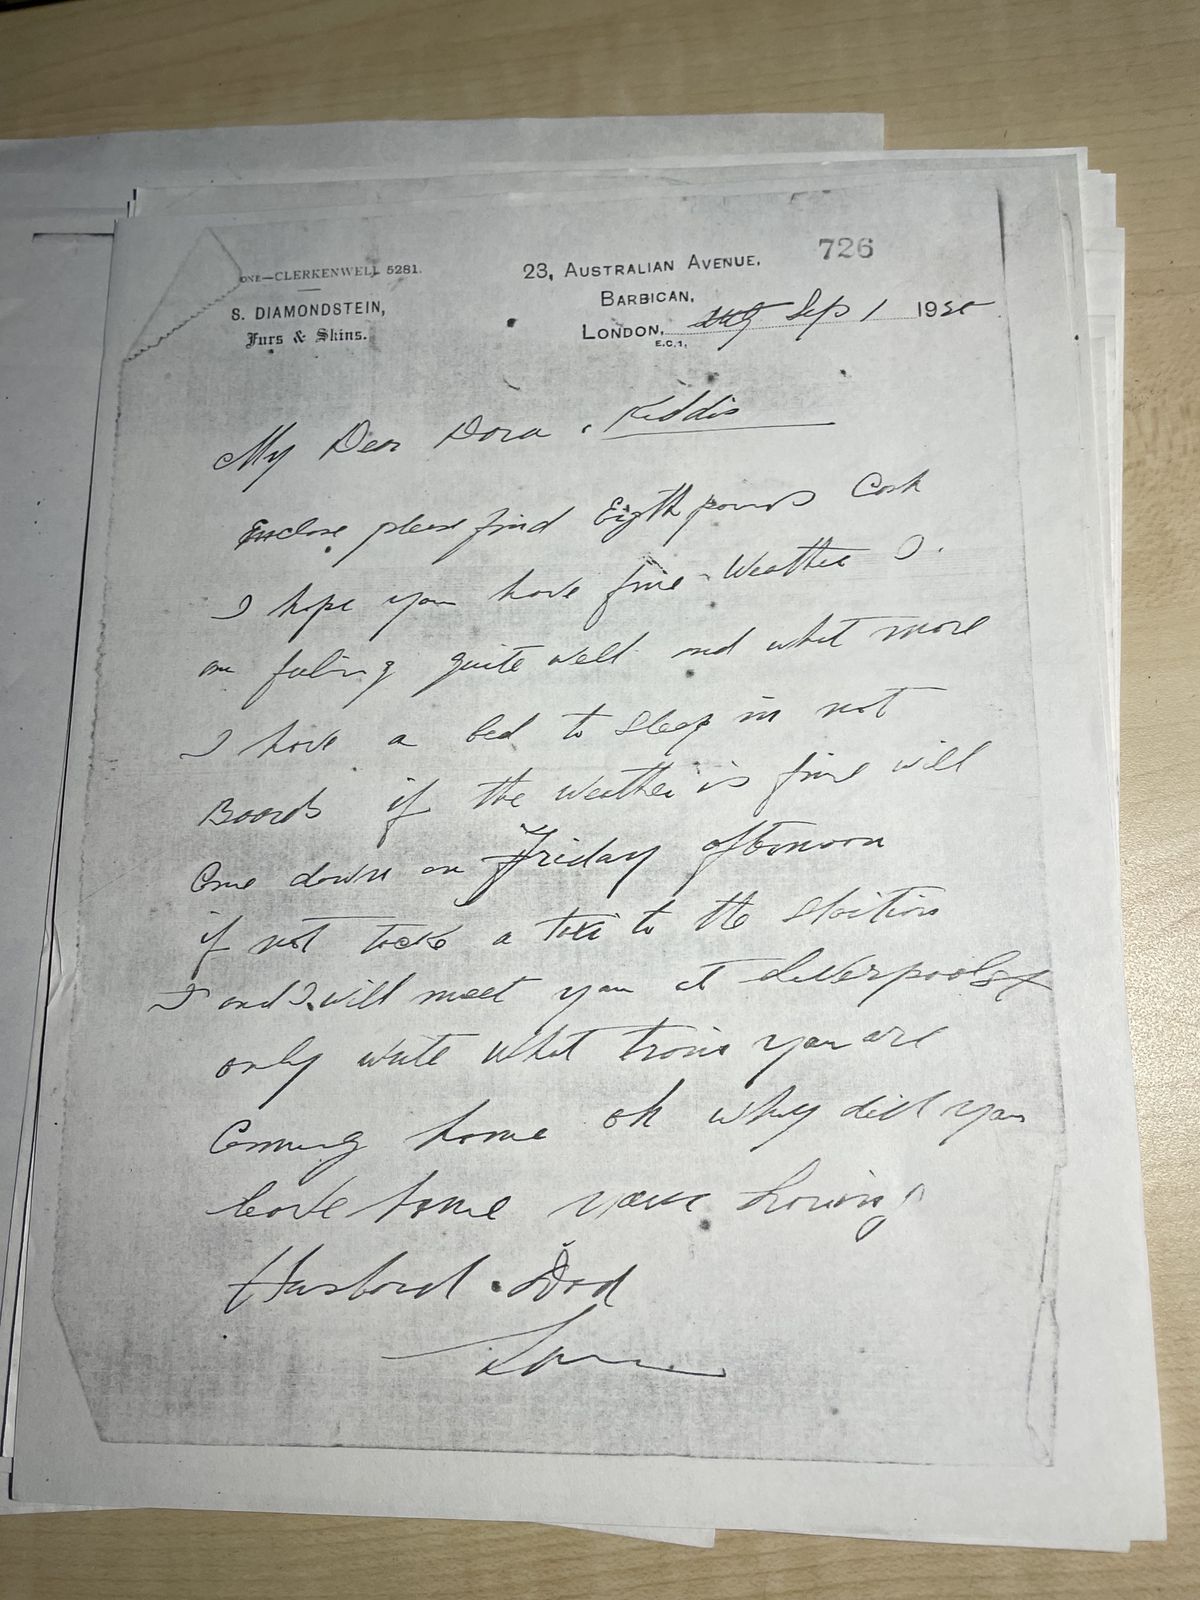 726
ONE—CLERKENWELL 5281.
S. DIAMONDSTEIN,
Furs & Skins.
23, AUSTRALIAN AVENUE,
BARBICAN,
LONDON, Sep 1 1920
E.C.1,
My Dear Dora, Kiddis
Enclose please find Eigth pounds Cash
I hope you have fine Weather I.
am feeling quite well and what more
I have a bed to sleep in not
Boards if the Weather is fine will
Come down on Friday afternoon
if not take a taxi to the station
I and I will meet you at Liverpool St
only write what train you are
Coming home oh why did you
leave home your Loving
Husband. Dad